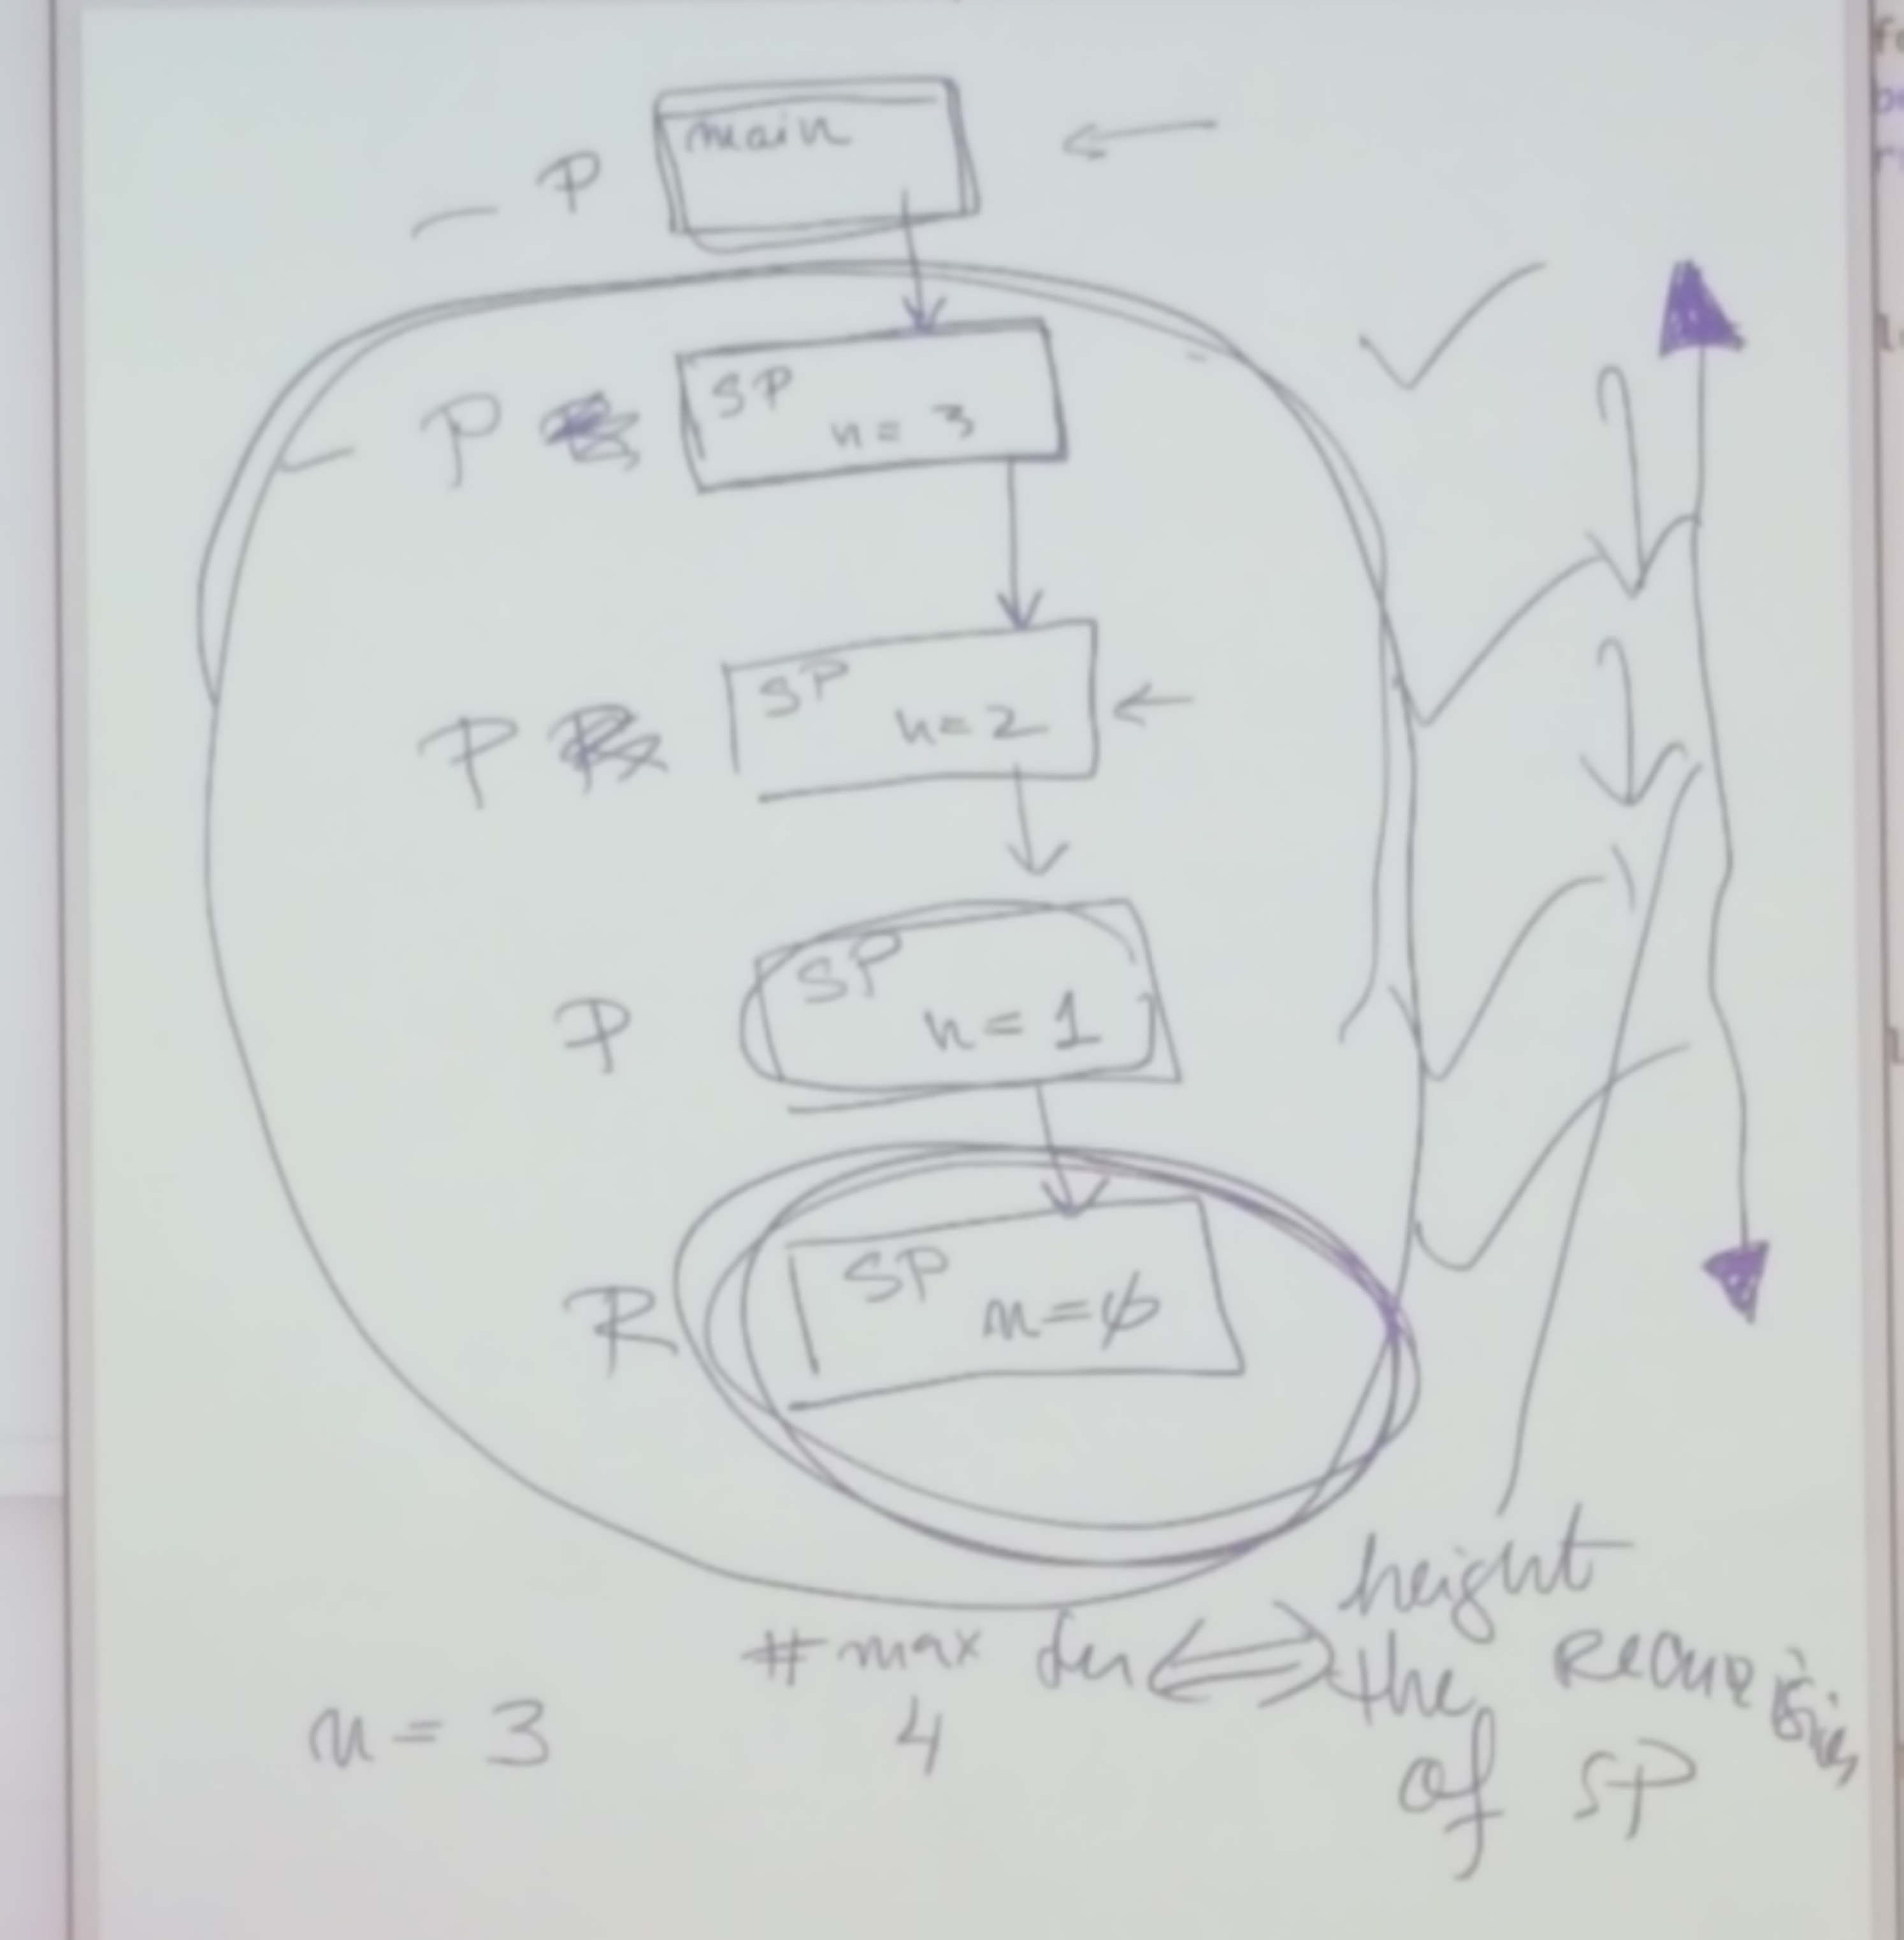 main
P
SP
n = 3
P
SP
n = 2
P
SP
n = 1
P
SP
n = ϕ
R
# max fn ⟺ height
the Recursion
of SP
n = 3
4